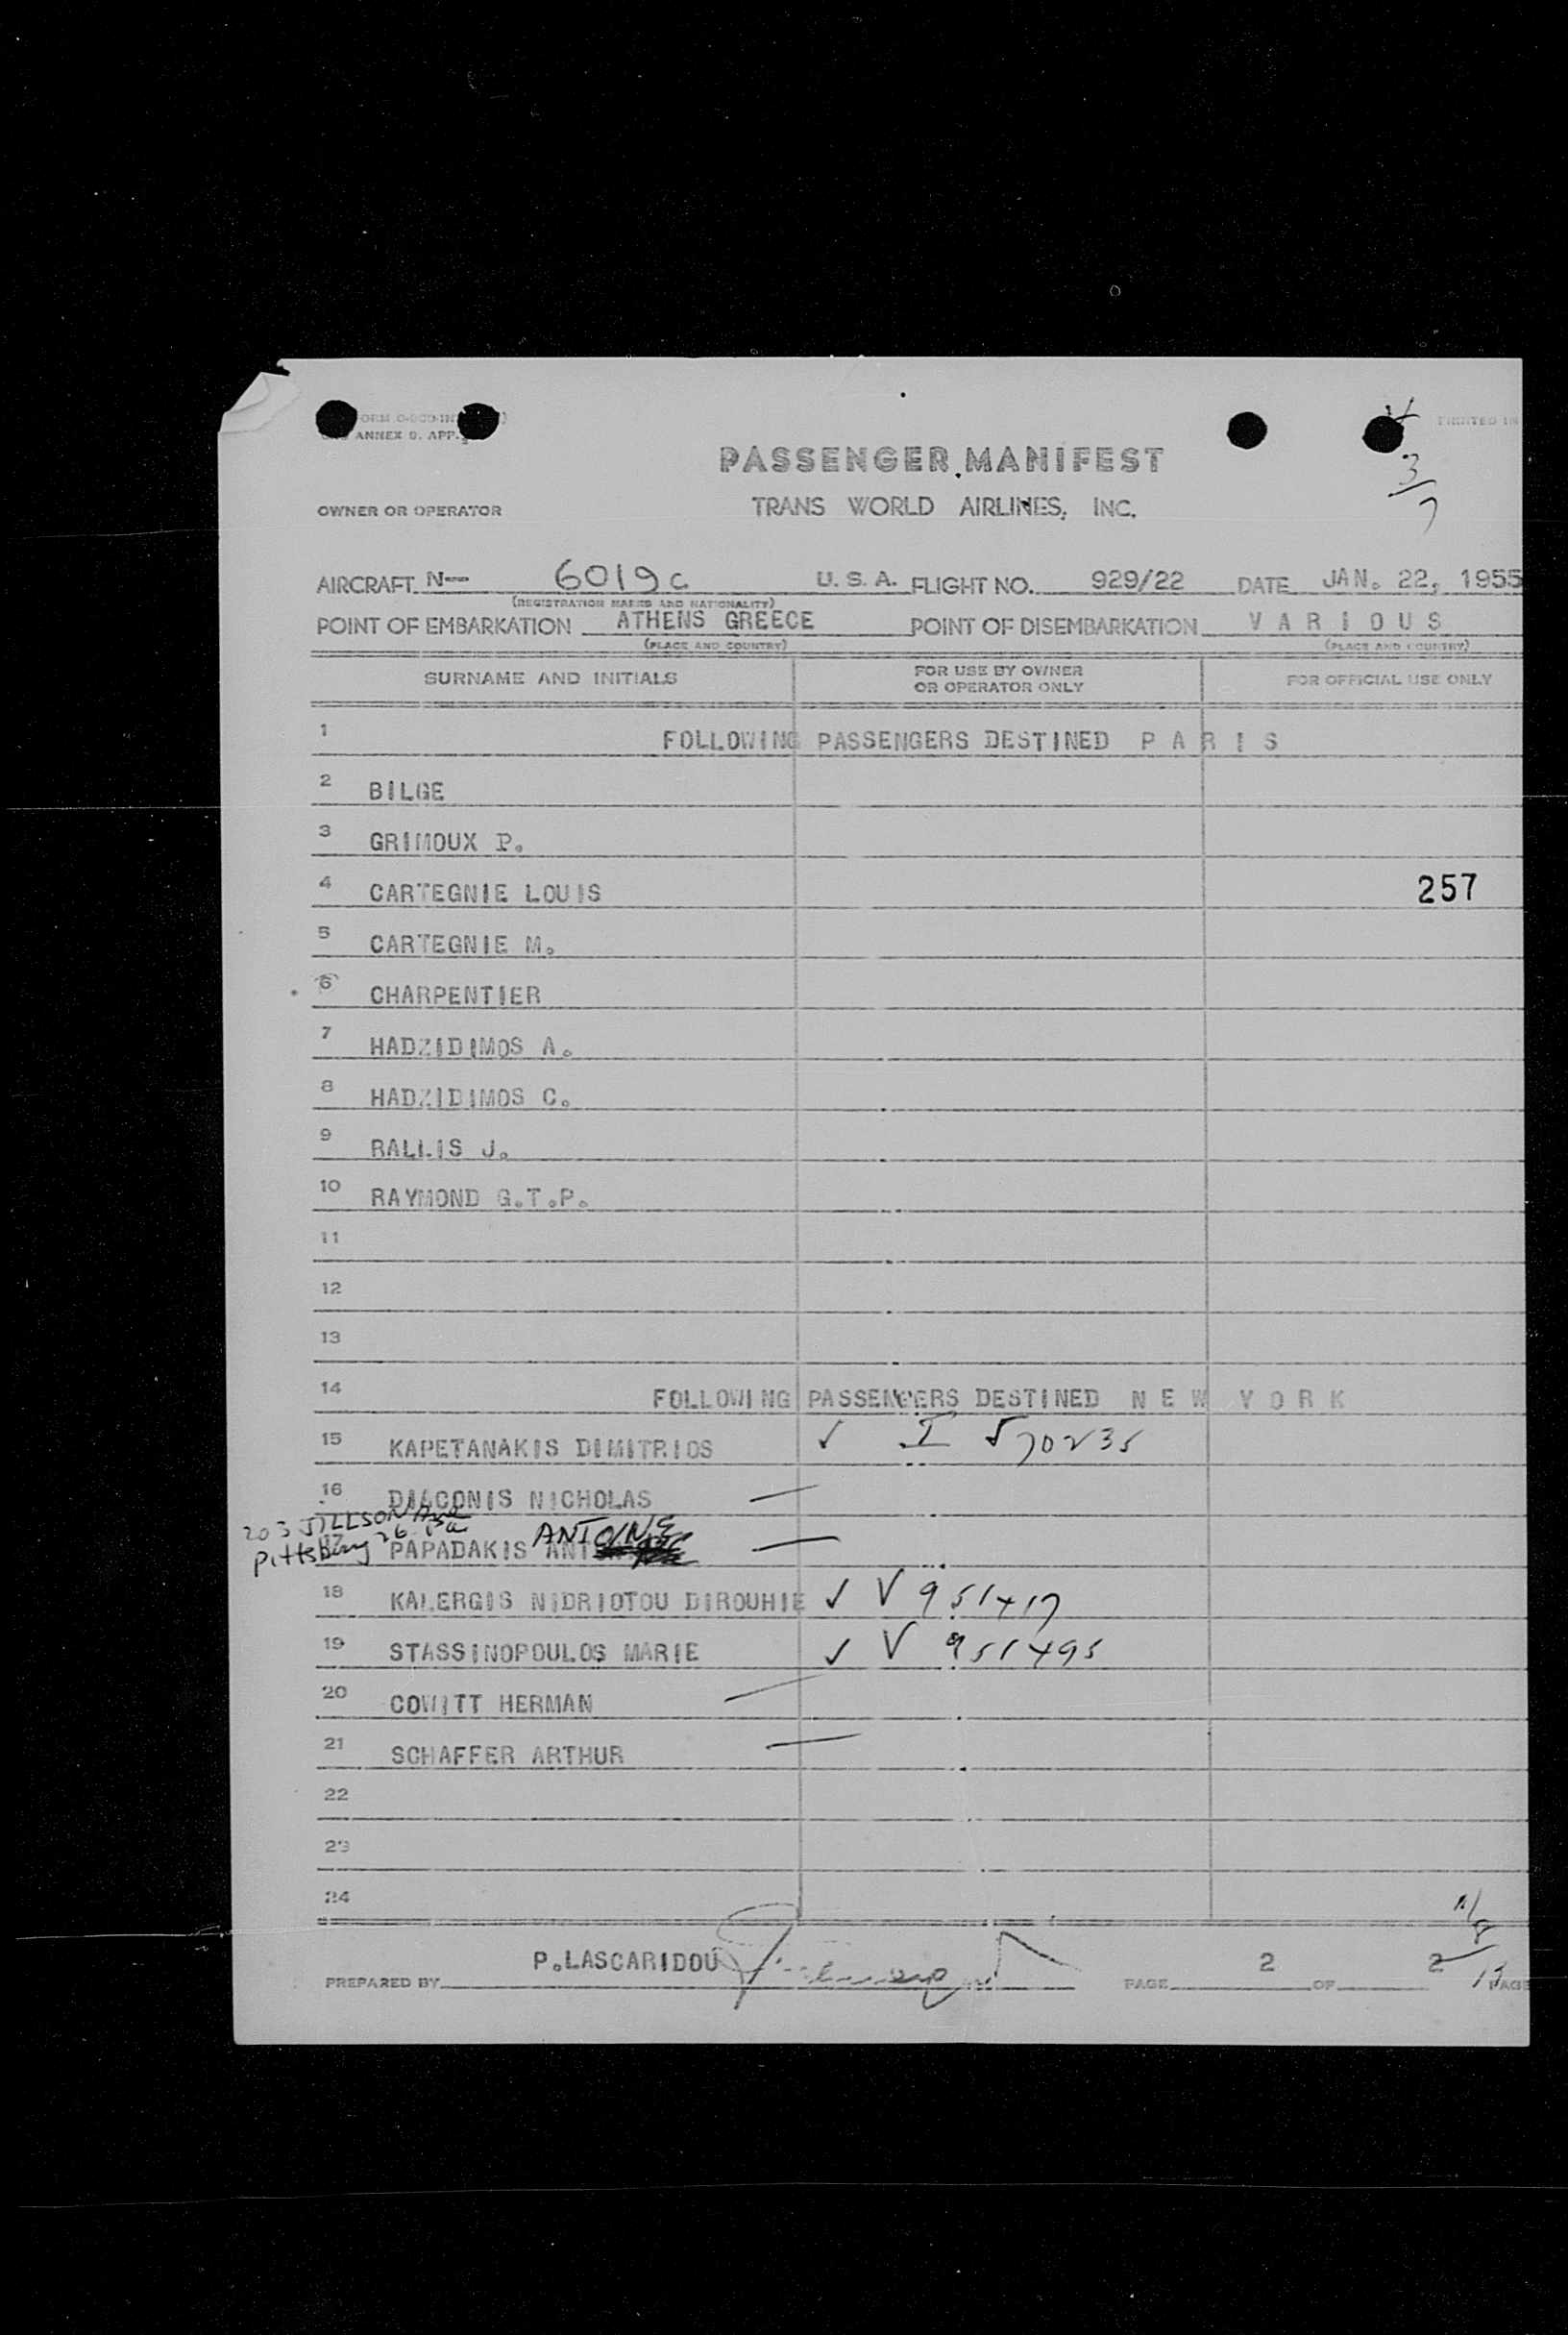 ANNEX 9. APP.
PRINTED IN
PASSENGER MANIFEST
3
7
OWNER OR OPERATOR TRANS WORLD AIRLINES, INC.
AIRCRAFT N-- 6019c U.S.A. FLIGHT NO. 929/22 DATE JAN. 22, 1955
(REGISTRATION MARKS AND NATIONALITY)
POINT OF EMBARKATION ATHENS GREECE POINT OF DISEMBARKATION V A R I O U S
(PLACE AND COUNTRY) (PLACE AND COUNTRY)
SURNAME AND INITIALS FOR USE BY OWNER OR OPERATOR ONLY FOR OFFICIAL USE ONLY
1 FOLLOWING PASSENGERS DESTINED P A R I S
2 BILGE
3 GRIMOUX P.
4 CARTEGNIE LOUIS 257
5 CARTEGNIE M.
6 CHARPENTIER
7 HADZIDIMOS A.
8 HADZIDIMOS C.
9 RALLIS J.
10 RAYMOND G.T.P.
11
12
13
14 FOLLOWING PASSENGERS DESTINED N E W Y O R K
15 KAPETANAKIS DIMITRIOS ✓ I 570235
16 DIACONIS NICHOLAS —
203 JILLSON Ave
Pittsburg 26 Pa
17 PAPADAKIS ANTOINE —
18 KALERGIS NIDRIOTOU DIROUHIE ✓ V 951417
19 STASSINOPOULOS MARIE ✓ V 951495
20 COWITT HERMAN —
21 SCHAFFER ARTHUR —
22
23
24
PREPARED BY P.LASCARIDOU PAGE 2 OF 2 PAGE